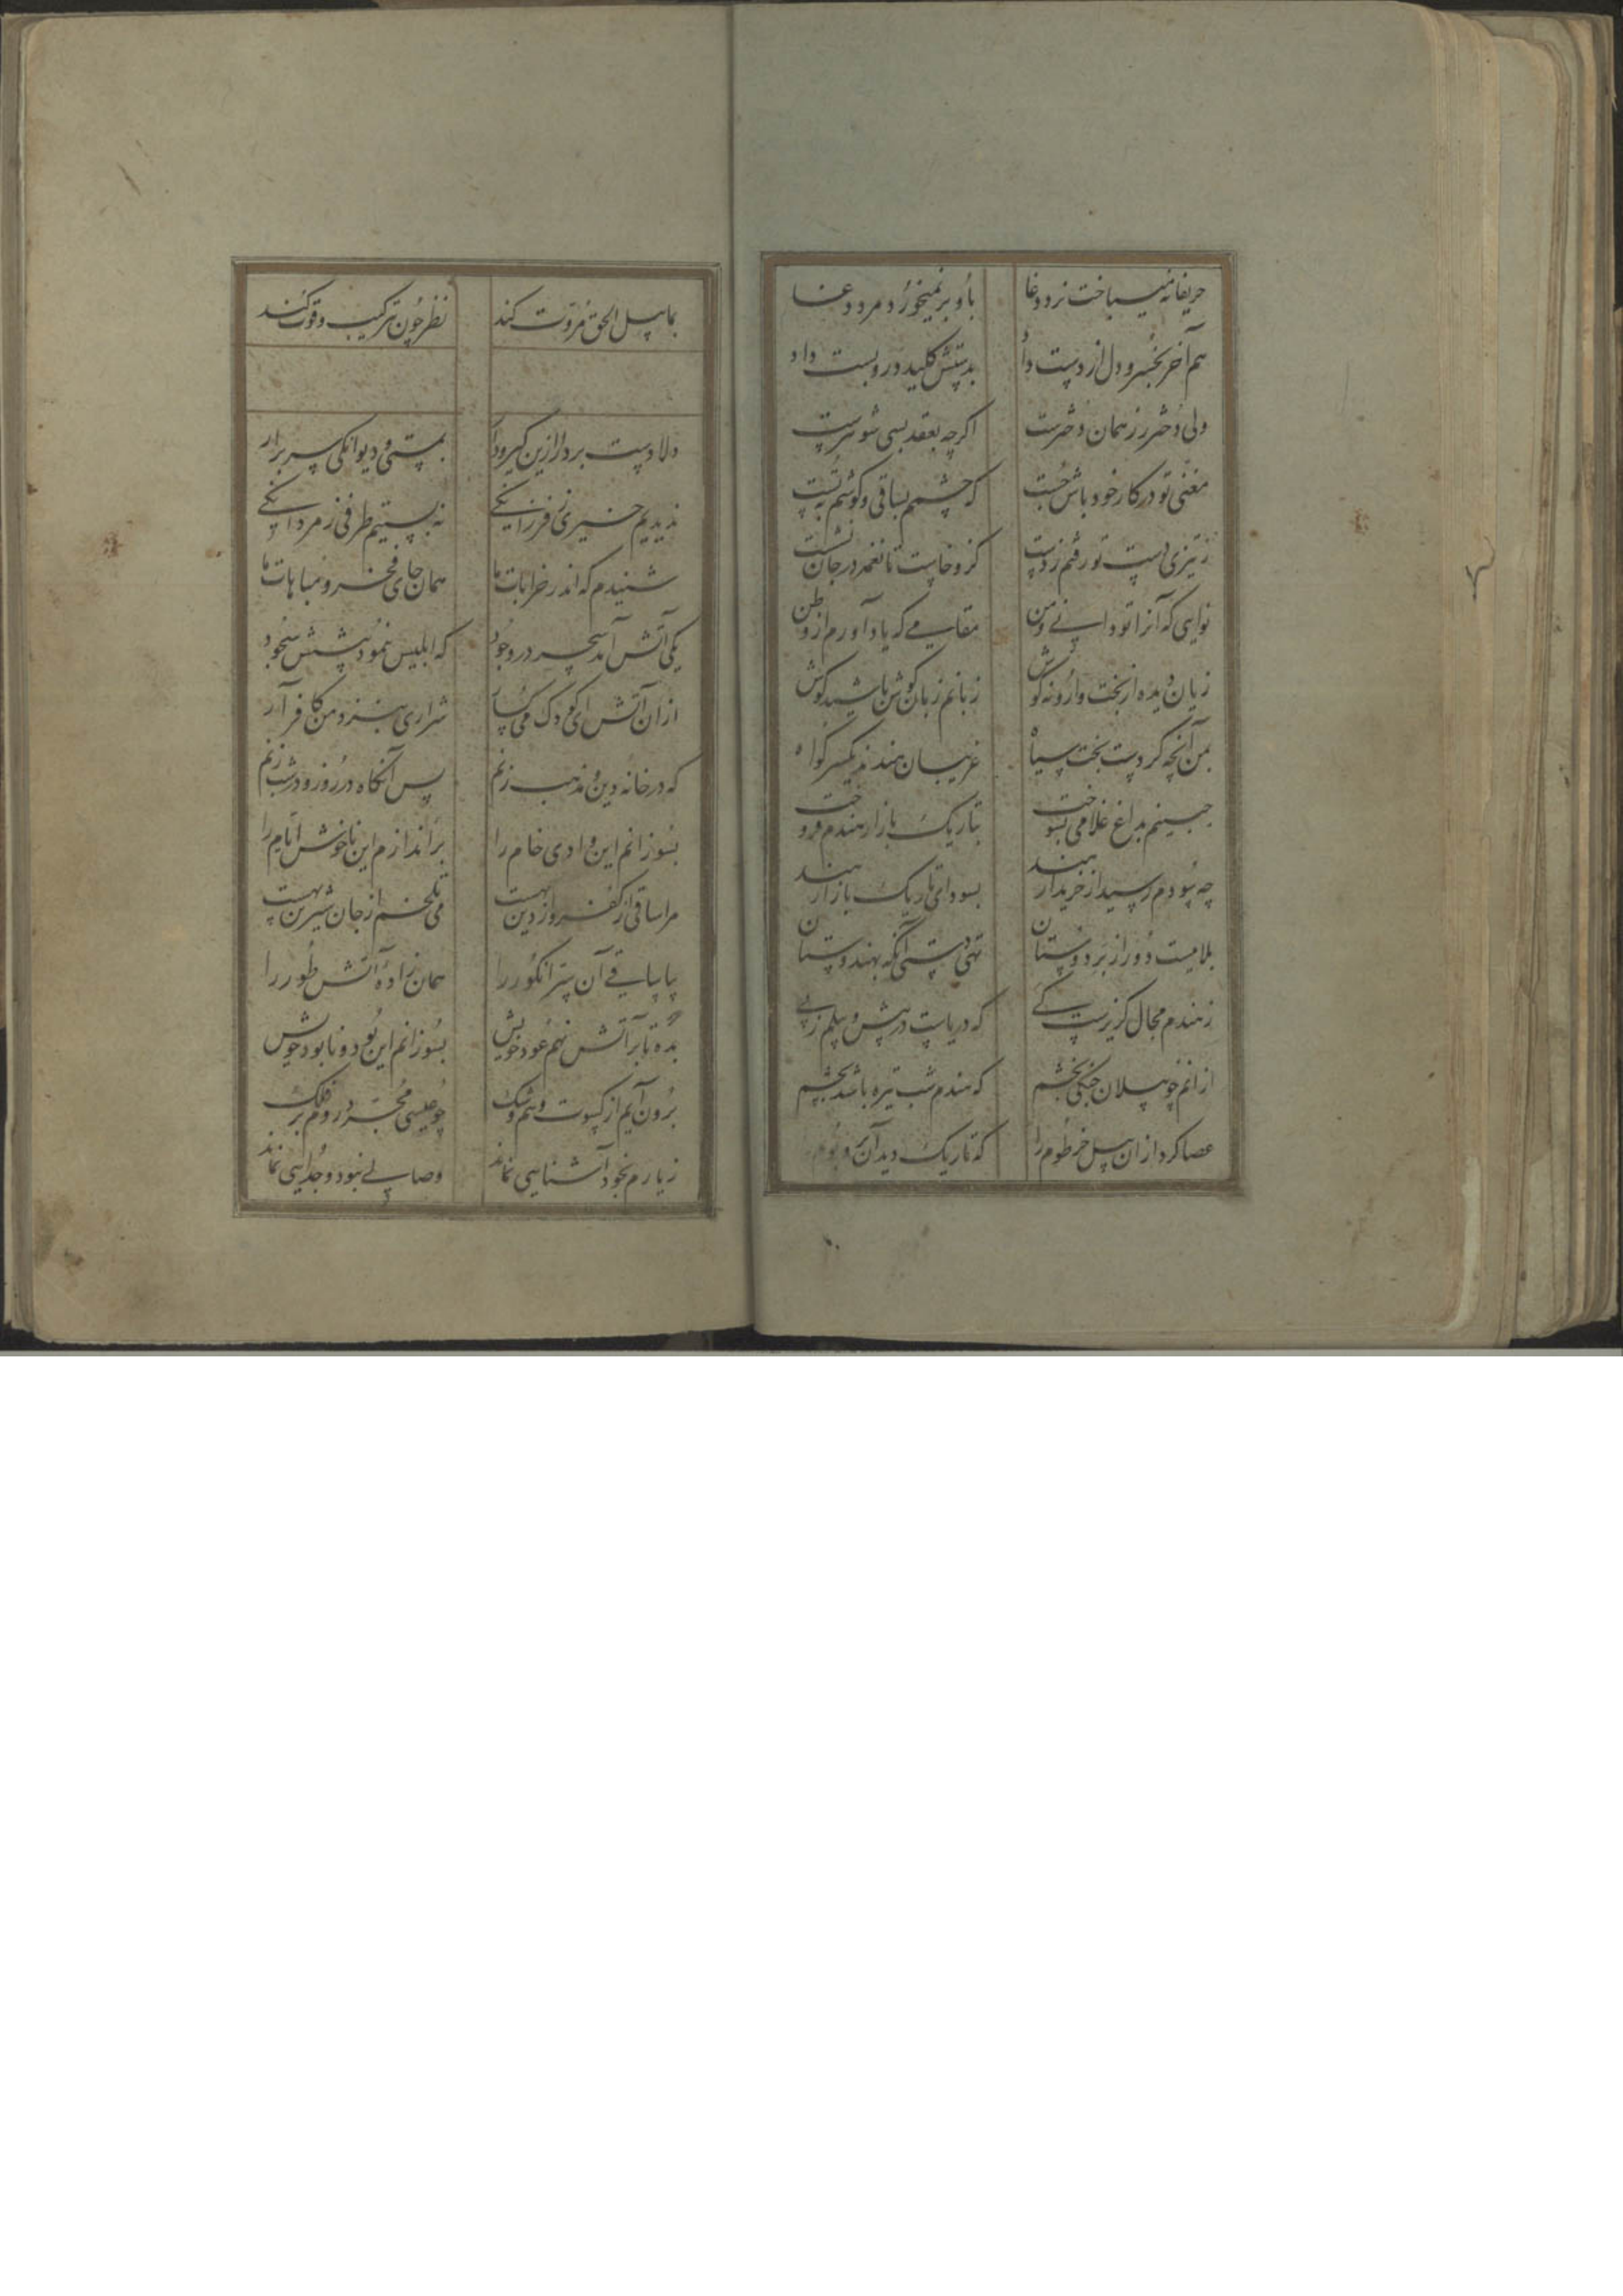 حریفانه میباخت نرد دغا باو بر نمیخورد مرد دغا
هم آخر بخسرو دل از دست داد بدستش کلید در و بست داد
ولی دختر رز همان دخترست اگرچه بعقد بسی شوهرست
مغنی تو در کار خود باش چست که چشمم بساقی و گوشم به تست
ز تیزی دست تو رفتم ز دست کزو خاست تا نغمه در جان نشست
نوایی که آنرا تو دانی و من مقامی که یاد آورم از وطن
زیان دیده از بخت وارونه گوش زبانم زبان گوش من باشید گوش
بمن آنچه کردست بخت سیاه غریبان هندند یکسر گواه
جبینم بداغ غلامی بسوخت بتاریک بازار هندم فروخت
چه سودم رسید از خریدار هند بسودای تاریک بازار هند
بلاییست دور از بر دوستان تهی دستی آنگه بهندوستان
ز هندم مجال گریزست کی که دریاست در پیش و پیلم ز پی
از آنم چو پیلان جنگی بخشم که هندم شب تیره باشد بچشم
عصا کرد از آن پیل خرطوم را که تاریک دید آن
بما پیل الحق مروت کند نظر چون بترکیب و قوت کند
دلا دست بردار ازین گیرودار بمستی و دیوانگی سر برار
ندیدیم خیری ز فرزانگی نه بستیم طرفی ز مردانگی
شنیدم که اندر خرابات ما همان جای فخر و مباهات ما
یکی آتش آمد سحر در وجود که ابلیس ننمود پیشش سجود
ازان آتش ای کودک می شراری بنزد من کافر آر
که در خانه دین و مذهب زنم پس آنگاه در روز و در شب زنم
بسوزانم این وادی خام را براندازم این ناخوش ایام را
مرا ساقی از کفر و از دین بهست می تلخم از جان شیرین بهست
بیا ساقی آن سر انگور را همان زاده آتش طور را
بده تا بر آتش نهم عود خویش بسوزانم این بود و نابود خویش
برون آیم از کسوت وهم و شک چو عیسی مجرد روم بر فلک
ز یارم بخود آشنایی نماند وصالی نبود و جدایی نماند